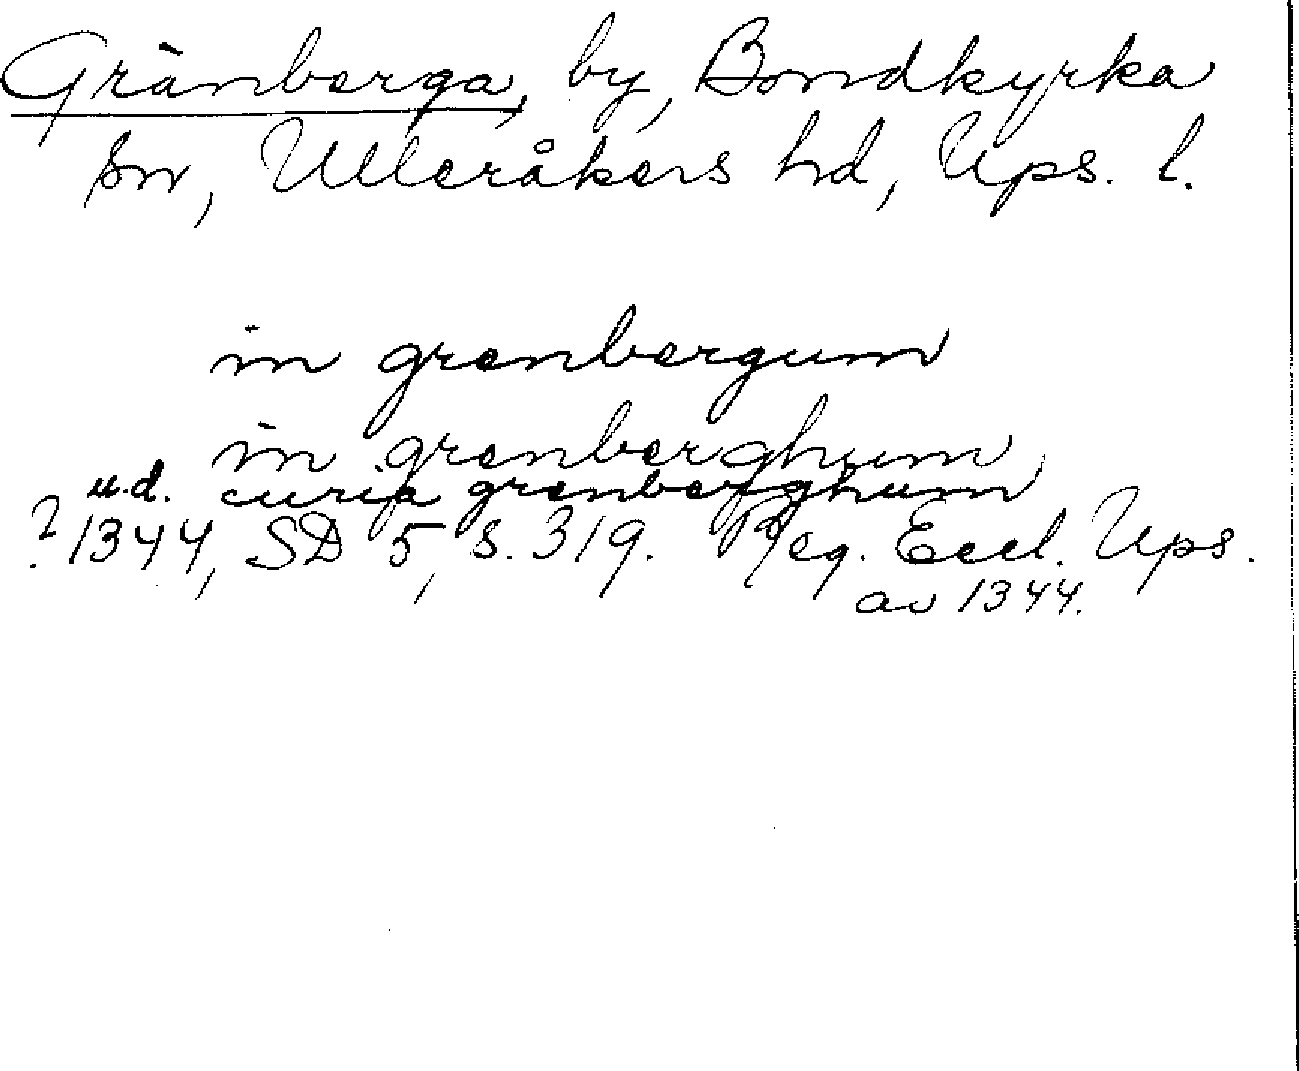 Gränberga, by, Bondkyrka
sn, Ulleråkers hd, Ups. l.
in grenbergum
in grenberghum,
u.d. curia grenberghum
? 1344, SD 5, s. 319. Reg. Eccl. Ups.
av 1344.